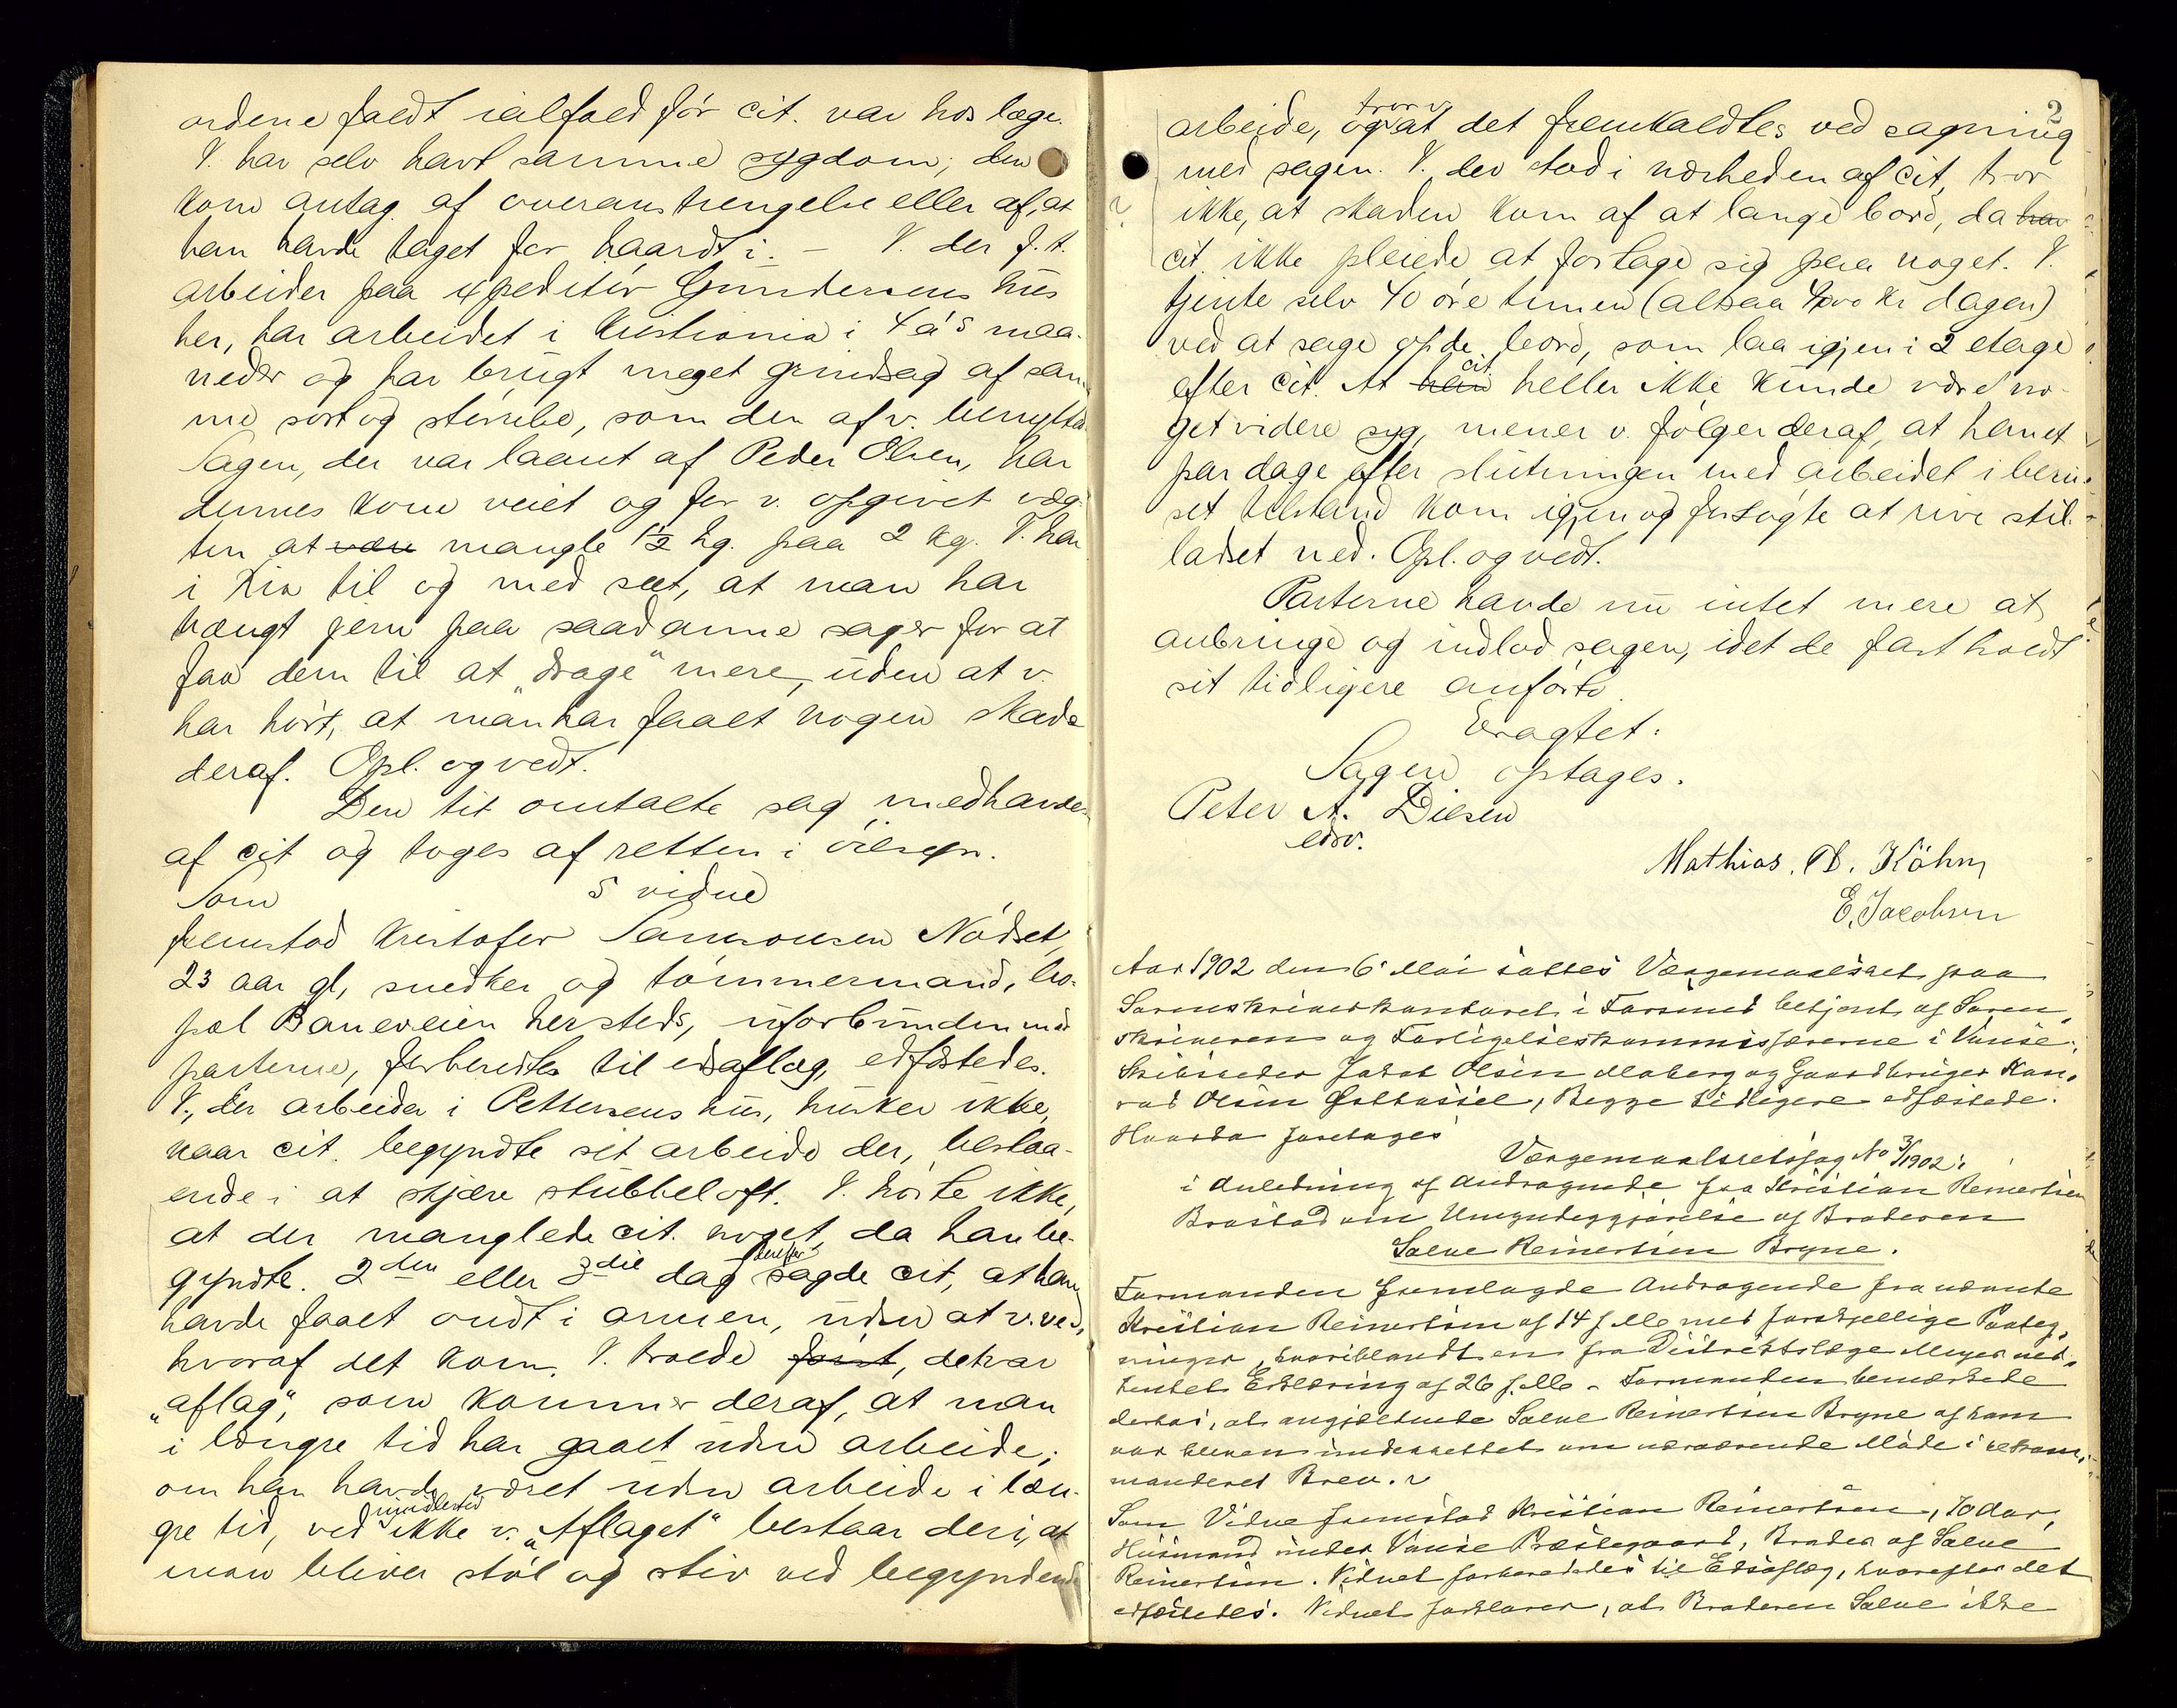 ordene faldt ialfald før cit. var hos læge.
V. har selv havt samme sygdom; den
kom antag. af overanstrengelse eller af, at
han havde taget for haardt i. – V. der f.t.
arbeider paa expeditør Gundersens hus
her, har arbeidet i Kristiania i 4 à 5 maa-
neder og har brugt meget grindsag af sam-
me sort og størrelse, som den af v. benyttede
Sagen, der var laant af Peder Olsen, har
dennes kone veiet og for v. opgivet væg-
ten at være mangle 1½ hg. paa 2 kg. V. har
i Kra til og med seet, at man har
hængt jern paa saadanne sager for at
faa dem til at "drage" mere, uden at v.
har hørt, at man har faaet nogen skade
deraf. Opl. og vedt.
Den tit omtalte sag medhavdes
af cit og toges af retten i øiesyn.
Som 5 vidne
fremstod Kristofer Samsonsen Nødset,
23 aar gl, snedker og tømmermand, bo-
pæl Baneveien hersteds, uforbunden med
parterne, forberedtes til edsaflæg, edfæstedes.
V., der arbeider i Pettersens hus, husker ikke,
naar cit. begyndte sit arbeide der, bestaa-
ende i at skjære stubbeloft. V. hørte ikke,
at der manglede cit. noget, da han be-
gyndte. 2den eller 3die dag derefter sagde cit, at han
havde faaet ondt i armen, uden at v. ved,
hvoraf det kom. V. troede først, det var
"aflag", som kommer deraf, at man
i længre tid har gaaet uden arbeide;
om han havde været uden arbeide i læn-
gre tid, ved imidlertid ikke v. "Aflaget" bestaar deri, at
man bliver støl og stiv ved begyndende
2
arbeide, og tror v. at det fremkaldtes ved sagning
med sagen. V. der stod i nærheden af cit, tror
ikke, at skaden kom af at lange bord, da han
cit. ikke pleiede at forlage sig paa noget. V.
tjente selv 40 øre timen (altsaa 4,00 kr dagen)
ved at sage op de bord, som laa igjen i 2 etage
efter cit. At han cit heller ikke kunde være no-
get videre syg, mener v. følger deraf, at han et
par dage efter slutningen med arbeidet i beru-
set tilstand kom igjen og forsøgte at rive stil-
ladset ned. Opl. og vedt.
Parterne havde nu intet mere at
anbringe og indlod sagen, idet de fastholdt
sit tidligere anførte.
Eragtet:
Sagen optages.
Peter A. Diesen
edsv.
Mathias. B. Köhn
E. Jacobsen
Aar 1902 den 6' Mai sattes Værgemaalsret paa
Sorenskriverkontoret i Farsund betjent af Soren-
skriveren og Forligelseskommissærerne i Vanse:
Skibsreder Jakob Olsen Maberg og Gaardbruger Kon-
rad Olsen, Begge tidligere edfæstede.
Hvorda foretages
Værgemaalsretssag No 3/1902:
i Anledning af Andragende fra Kristian Reinertsen
Brastad om Umyndiggjørelse af Broderen
Salve Reinertsen Bryne.
Formanden fremlagde Andragende fra nævnte
Kristian Reinertsen af 14 f. M. med forskjellige Paateg-
ninger, hvoriblandt en fra Distriktslæge Meyer ind-
hentet Erklæring af 26 f. M. – Formanden bemærkede
derhos, at angjældende Salve Reinertsen Bryne af ham
var bleven underrettet om nærværende Møde i rekom-
manderet Brev.
Som Vidne fremstod Kristian Reinertsen, 70 Aar,
Husmand under Vanse Præstegaard, Broder af Salve
Reinertsen. Vidnet forberededes til Edsaflæg, hvorefter det
edfæstedes. Vidnet forklarer, at Broderen Salve ikke